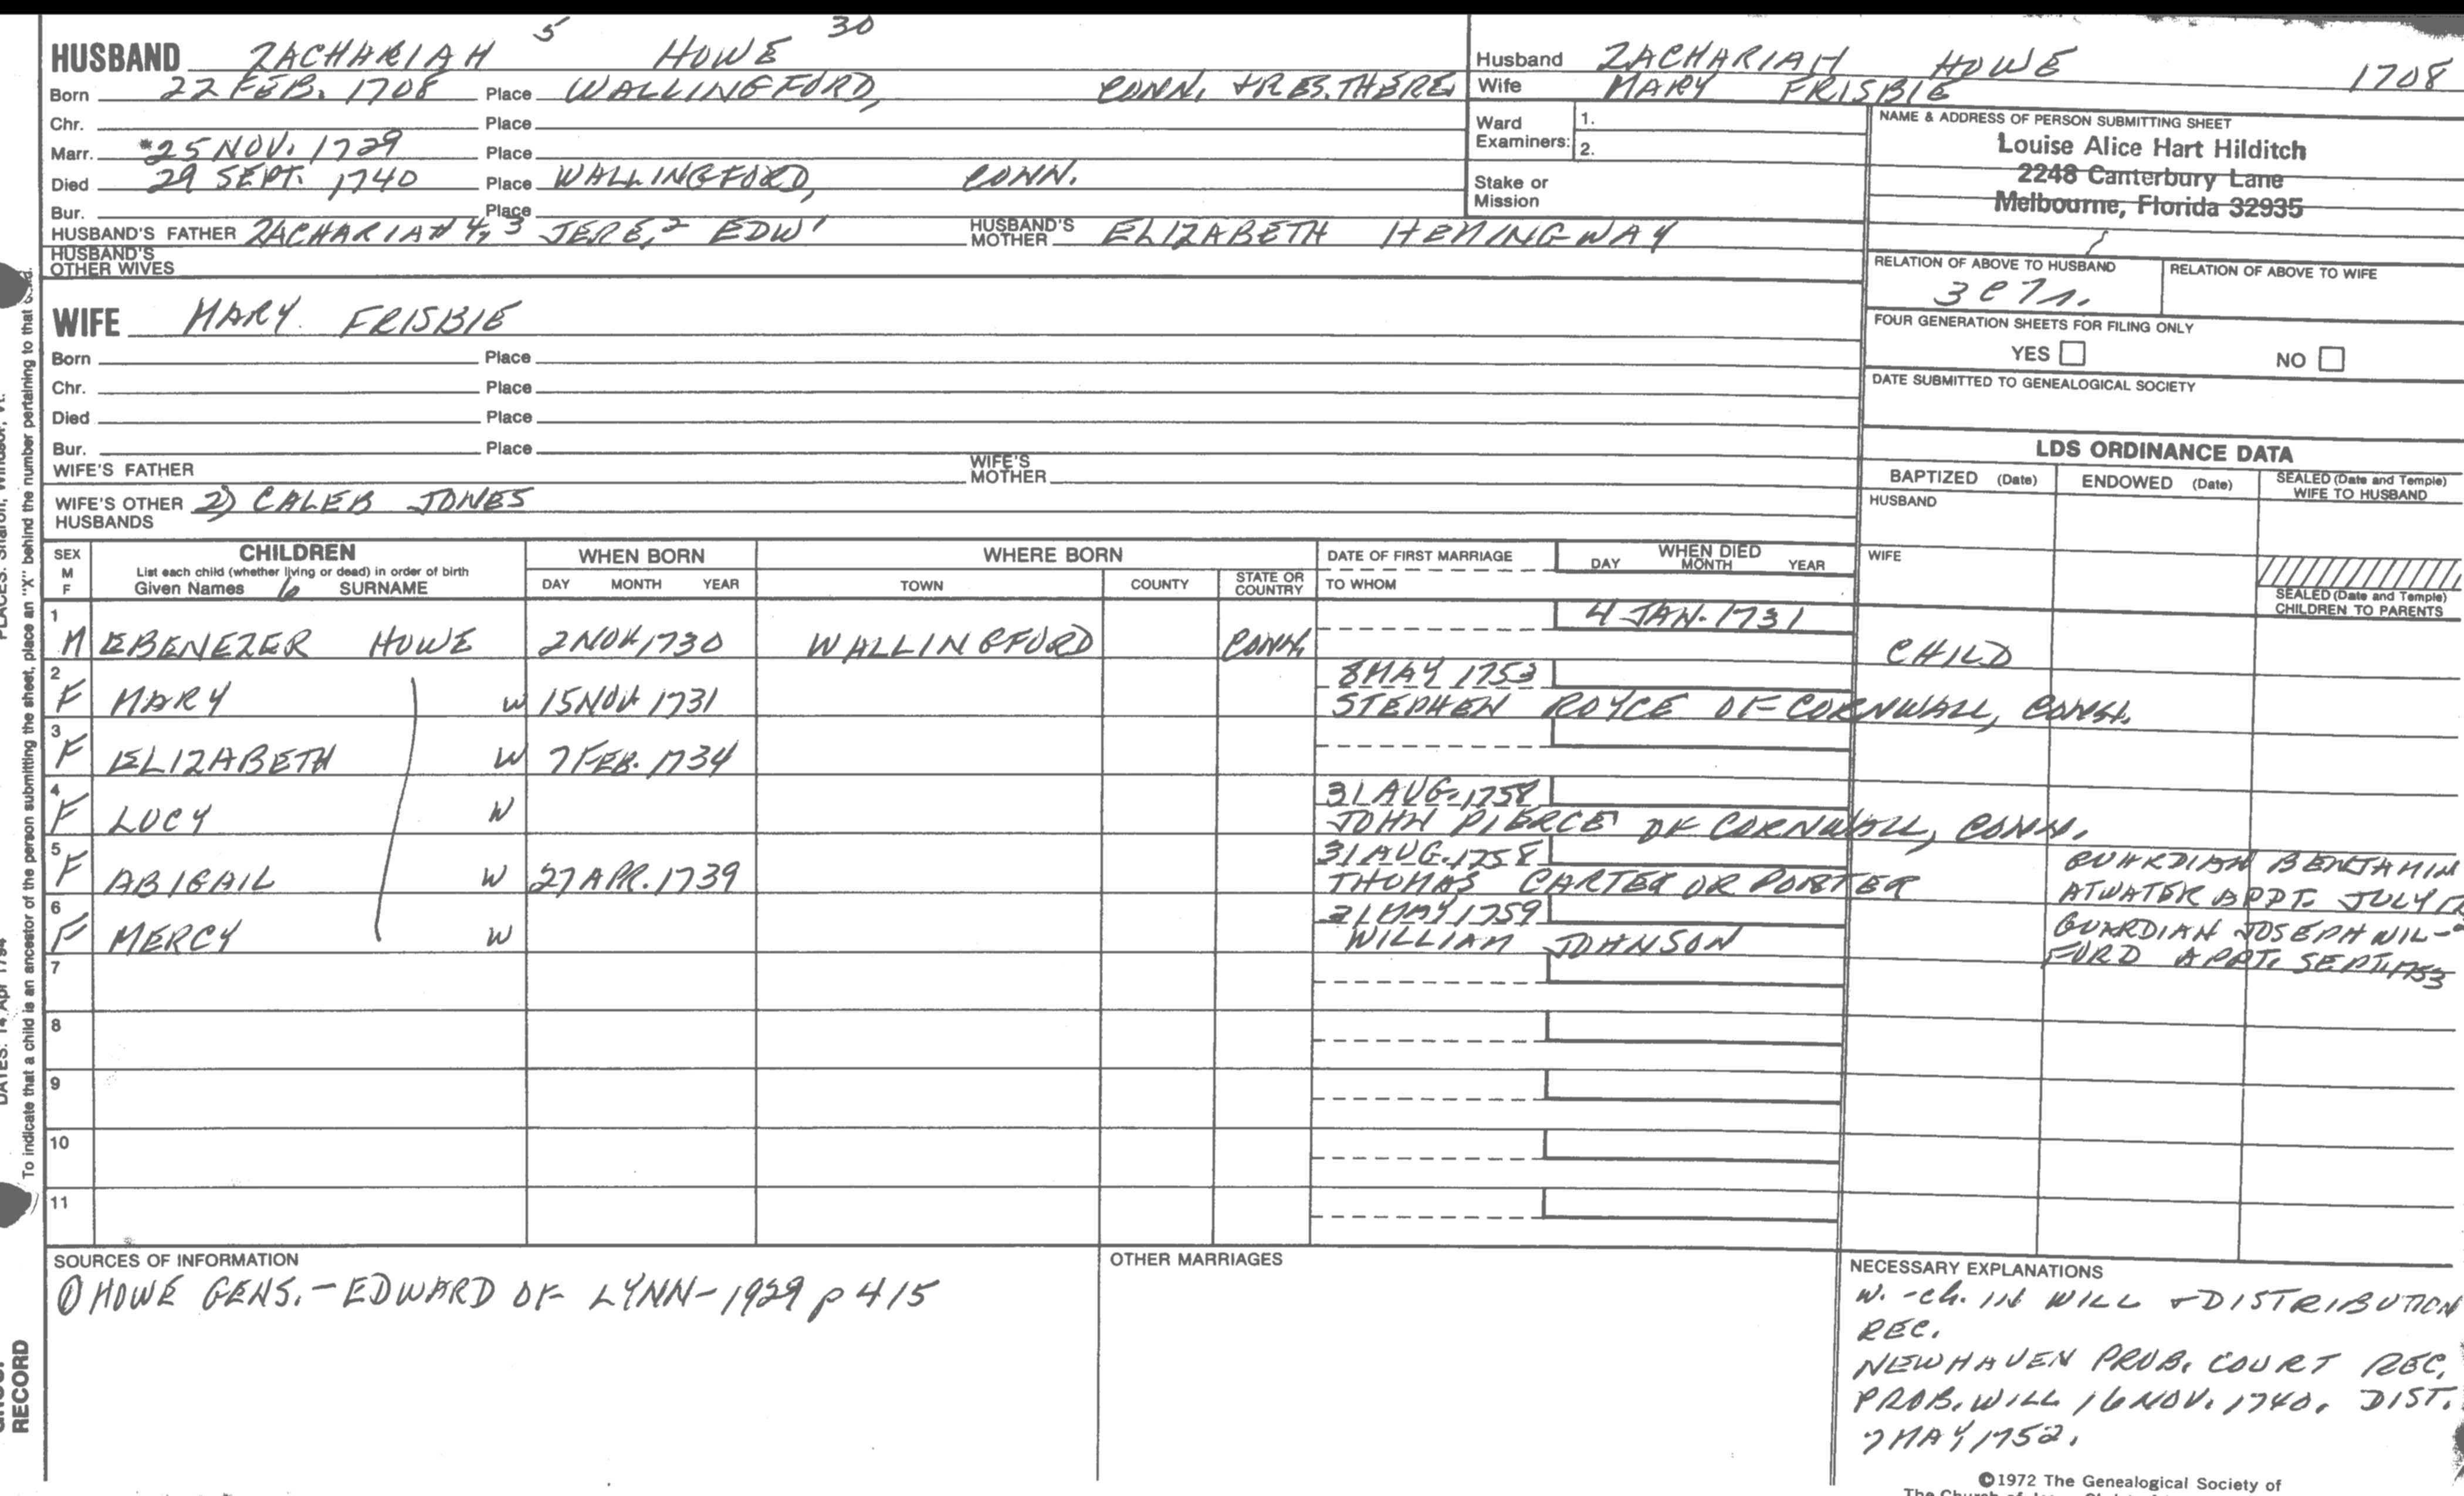 5 30
HUSBAND ZACHARIAH HOWE
Born 22 FEB. 1708 Place WALLINGFORD, CONN. + RES. THERE.
Chr. Place
Marr. *25 NOV. 1729 Place
Died 29 SEPT. 1740 Place WALLINGFORD, CONN.
Bur. Place
HUSBAND'S FATHER ZACHARIAH 4, 3 JERE, 2 EDW 1 HUSBAND'S MOTHER ELIZABETH HEMINGWAY
HUSBAND'S OTHER WIVES
WIFE MARY FRISBIE
Born Place
Chr. Place
Died Place
Bur. Place
WIFE'S FATHER WIFE'S MOTHER
WIFE'S OTHER HUSBANDS 2) CALEB JONES
Husband ZACHARIAH HOWE 1708
Wife MARY FRISBIE
Ward Examiners: 1.
2.
Stake or Mission
NAME & ADDRESS OF PERSON SUBMITTING SHEET
Louise Alice Hart Hilditch
2248 Canterbury Lane
Melbourne, Florida 32935
RELATION OF ABOVE TO HUSBAND RELATION OF ABOVE TO WIFE
3C7r.
FOUR GENERATION SHEETS FOR FILING ONLY
YES NO
DATE SUBMITTED TO GENEALOGICAL SOCIETY
LDS ORDINANCE DATA
BAPTIZED (Date) ENDOWED (Date) SEALED (Date and Temple) WIFE TO HUSBAND
HUSBAND
WIFE
SEALED (Date and Temple) CHILDREN TO PARENTS
SEX M F
CHILDREN
List each child (whether living or dead) in order of birth
Given Names 6 SURNAME
WHEN BORN
DAY MONTH YEAR
WHERE BORN
TOWN COUNTY STATE OR COUNTRY
DATE OF FIRST MARRIAGE
TO WHOM
WHEN DIED
DAY MONTH YEAR
1 4 JAN. 1731
M EBENEZER HOWE 2 NOV. 1730 WALLINGFORD CONN. CHILD
2 8 MAY 1753
F MARY W 15 NOV. 1731 STEPHEN ROYCE OF CORNWALL, CONN.
3
F ELIZABETH W 7 FEB. 1734
4 31 AUG. 1758
F LUCY W JOHN PIERCE OF CORNWALL, CONN.
5 31 AUG. 1758 GUARDIAN BENJAMIN
F ABIGAIL W 27 APR. 1739 THOMAS CARTER OR PORTER ATWATER APPT. JULY
6 21 MAY 1759 GUARDIAN JOSEPH WIL-
F MERCY W WILLIAM JOHNSON FORD APPT. SEPT. 1753
7
8
9
10
11
SOURCES OF INFORMATION
① HOWE GENS. - EDWARD OF LYNN - 1929 p 415
OTHER MARRIAGES
NECESSARY EXPLANATIONS
W. - ch. IN WILL + DISTRIBUTION
REC.
NEWHAVEN PROB. COURT REC.
PROB. WILL 16 NOV. 1740. DIST.
7 MAY 1752.
©1972 The Genealogical Society of
To indicate that a child is an ancestor of the person submitting the sheet, place an "X" behind the number pertaining to that
PLACES: Sharon, Windsor, Vt.
DATES: 14 Apr 1794
RECORD